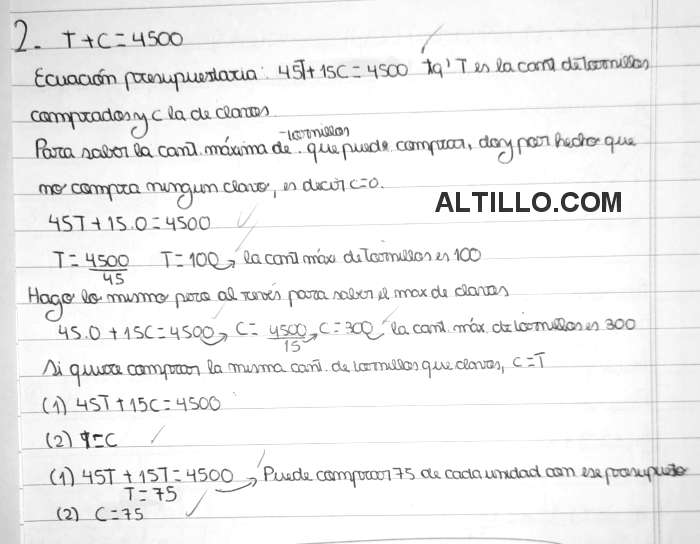 2. T+C=4500
Ecuación presupuestaria: 45T+15C=4500 tq' T es la cant de tornillos
comprados y C la de clavos
Para saber la cant. máxima de tornillos que puede comprar, doy por hecho que
no compra ningun clavo, es decir C=0.
45T+15.0=4500
T=4500/45 T=100 → la cant máx de tornillos es 100
Hago lo mismo pero al revés para saber el max de clavos
45.0+15C=4500 → C=4500/15 → C=300 la cant. máx. de tornillos es 300
Si quiere comprar la misma cant. de tornillos que clavos, C=T
(1) 45T+15C=4500
(2) T=C
(1) 45T+15T=4500 → Puede comprar 75 de cada unidad con ese presupuesto
T=75
(2) C=75
ALTILLO.COM